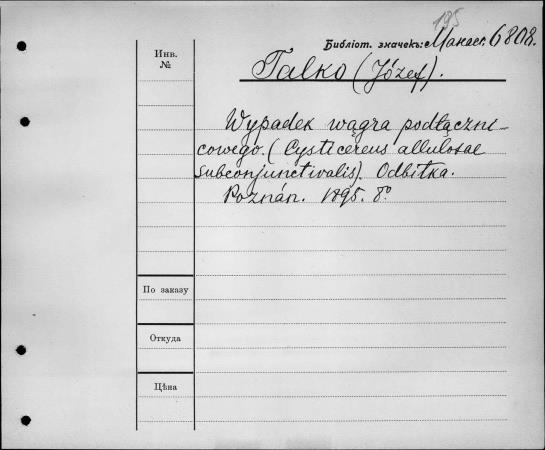 195
Библіот. значекъ: Манасс. 6808.
Инв.
№
Talko (Józef).
Wypadek wągra podłączni-
cowego. (Cysticereus allulosae
Subconjunctivalis). Odbitka.
Poznán. 1895. 8º
По заказу
Откуда
Цѣна